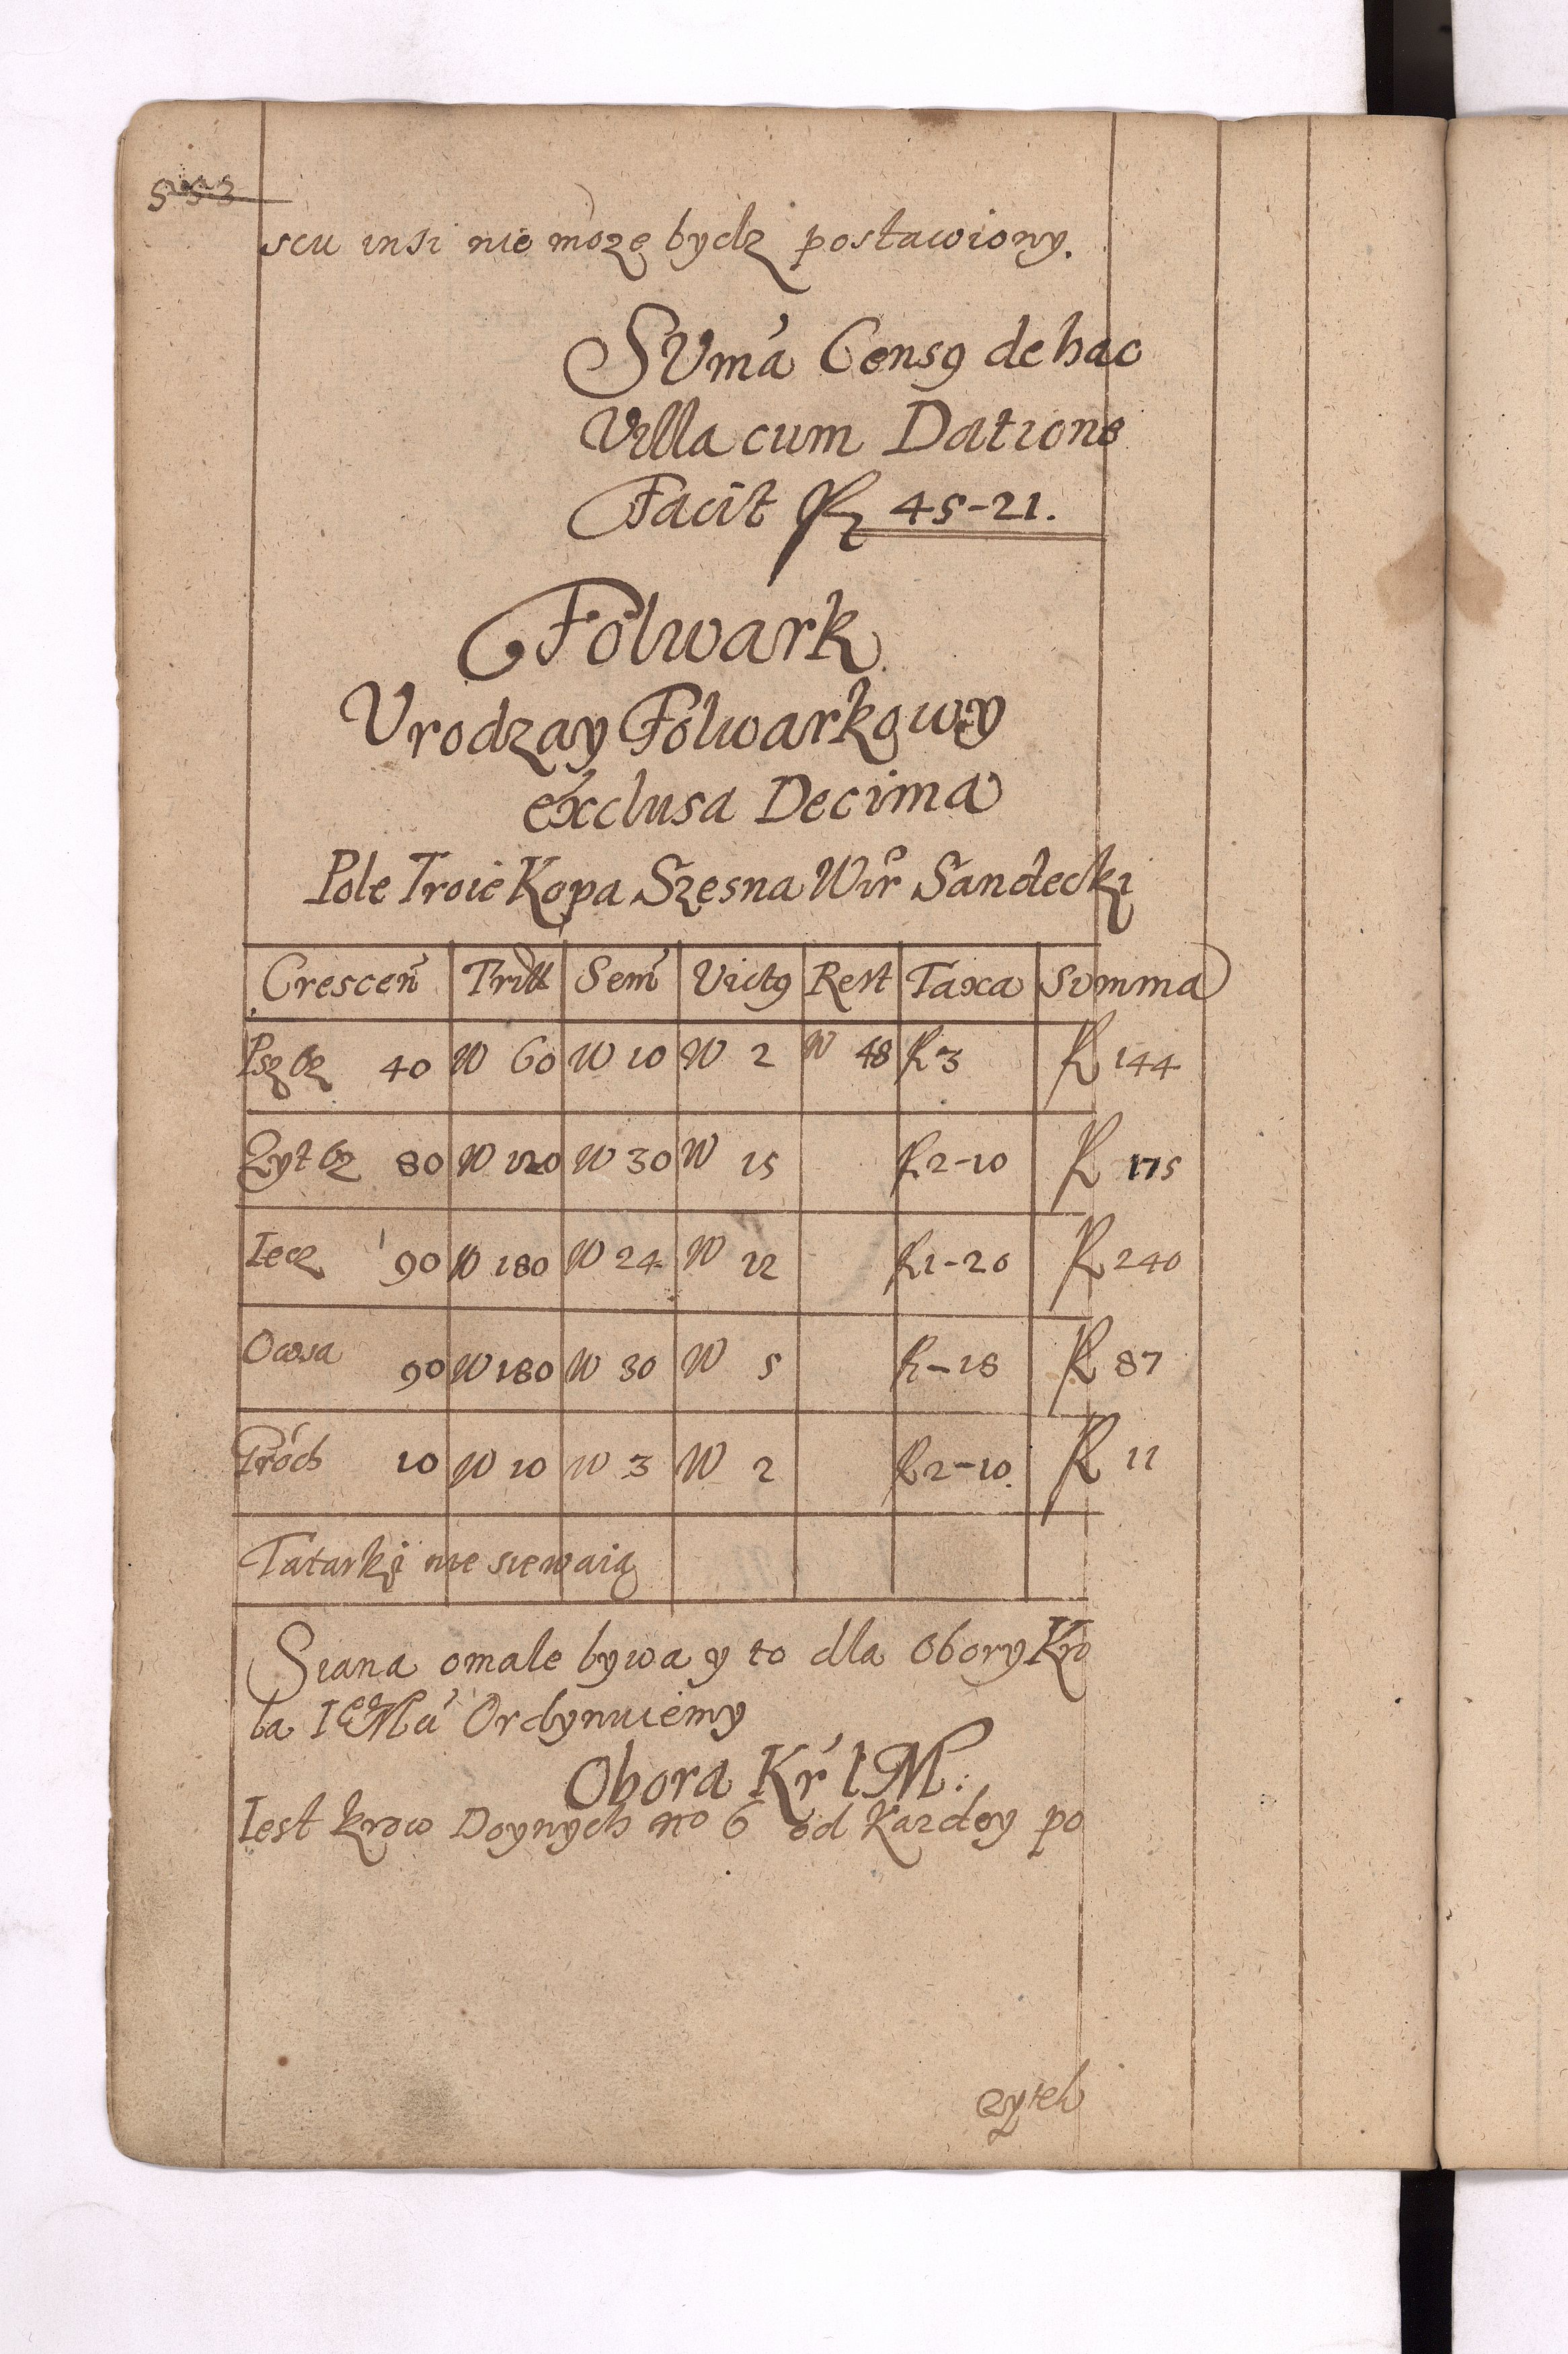 scu insi nie może bydz postawiony.
SVmá Censꝯ de hac
Villa cum Datione
Facit R 45-21.
Folwark
Vrodzay Folwarkowy
exclusa Decima
Pole Troie Kopa Szesna Wir Sandecki
Crescen Tritt Sem Victꝯ Rest Taxa Summa
Psz Oz 40 W 60 W 10 W 2 W 48 R 3 R 144
Zyt Oz 80 W 120 W 30 W 15 R 2-10 R 175
Iecz 90 W 180 W 24 W 12 R 1-20 R 240
Owsa 90 W 180 W 30 W 5 R -18 R 87
Gróch 10 W 10 W 3 W 2 R 2-10 R 11
Tatarki nie siewaią
Siana omale bywa y to dla Obory Kro
la Ordynuiemy
Obora Kr I M:
Iest krow Doynych no 6 od Kazdey po